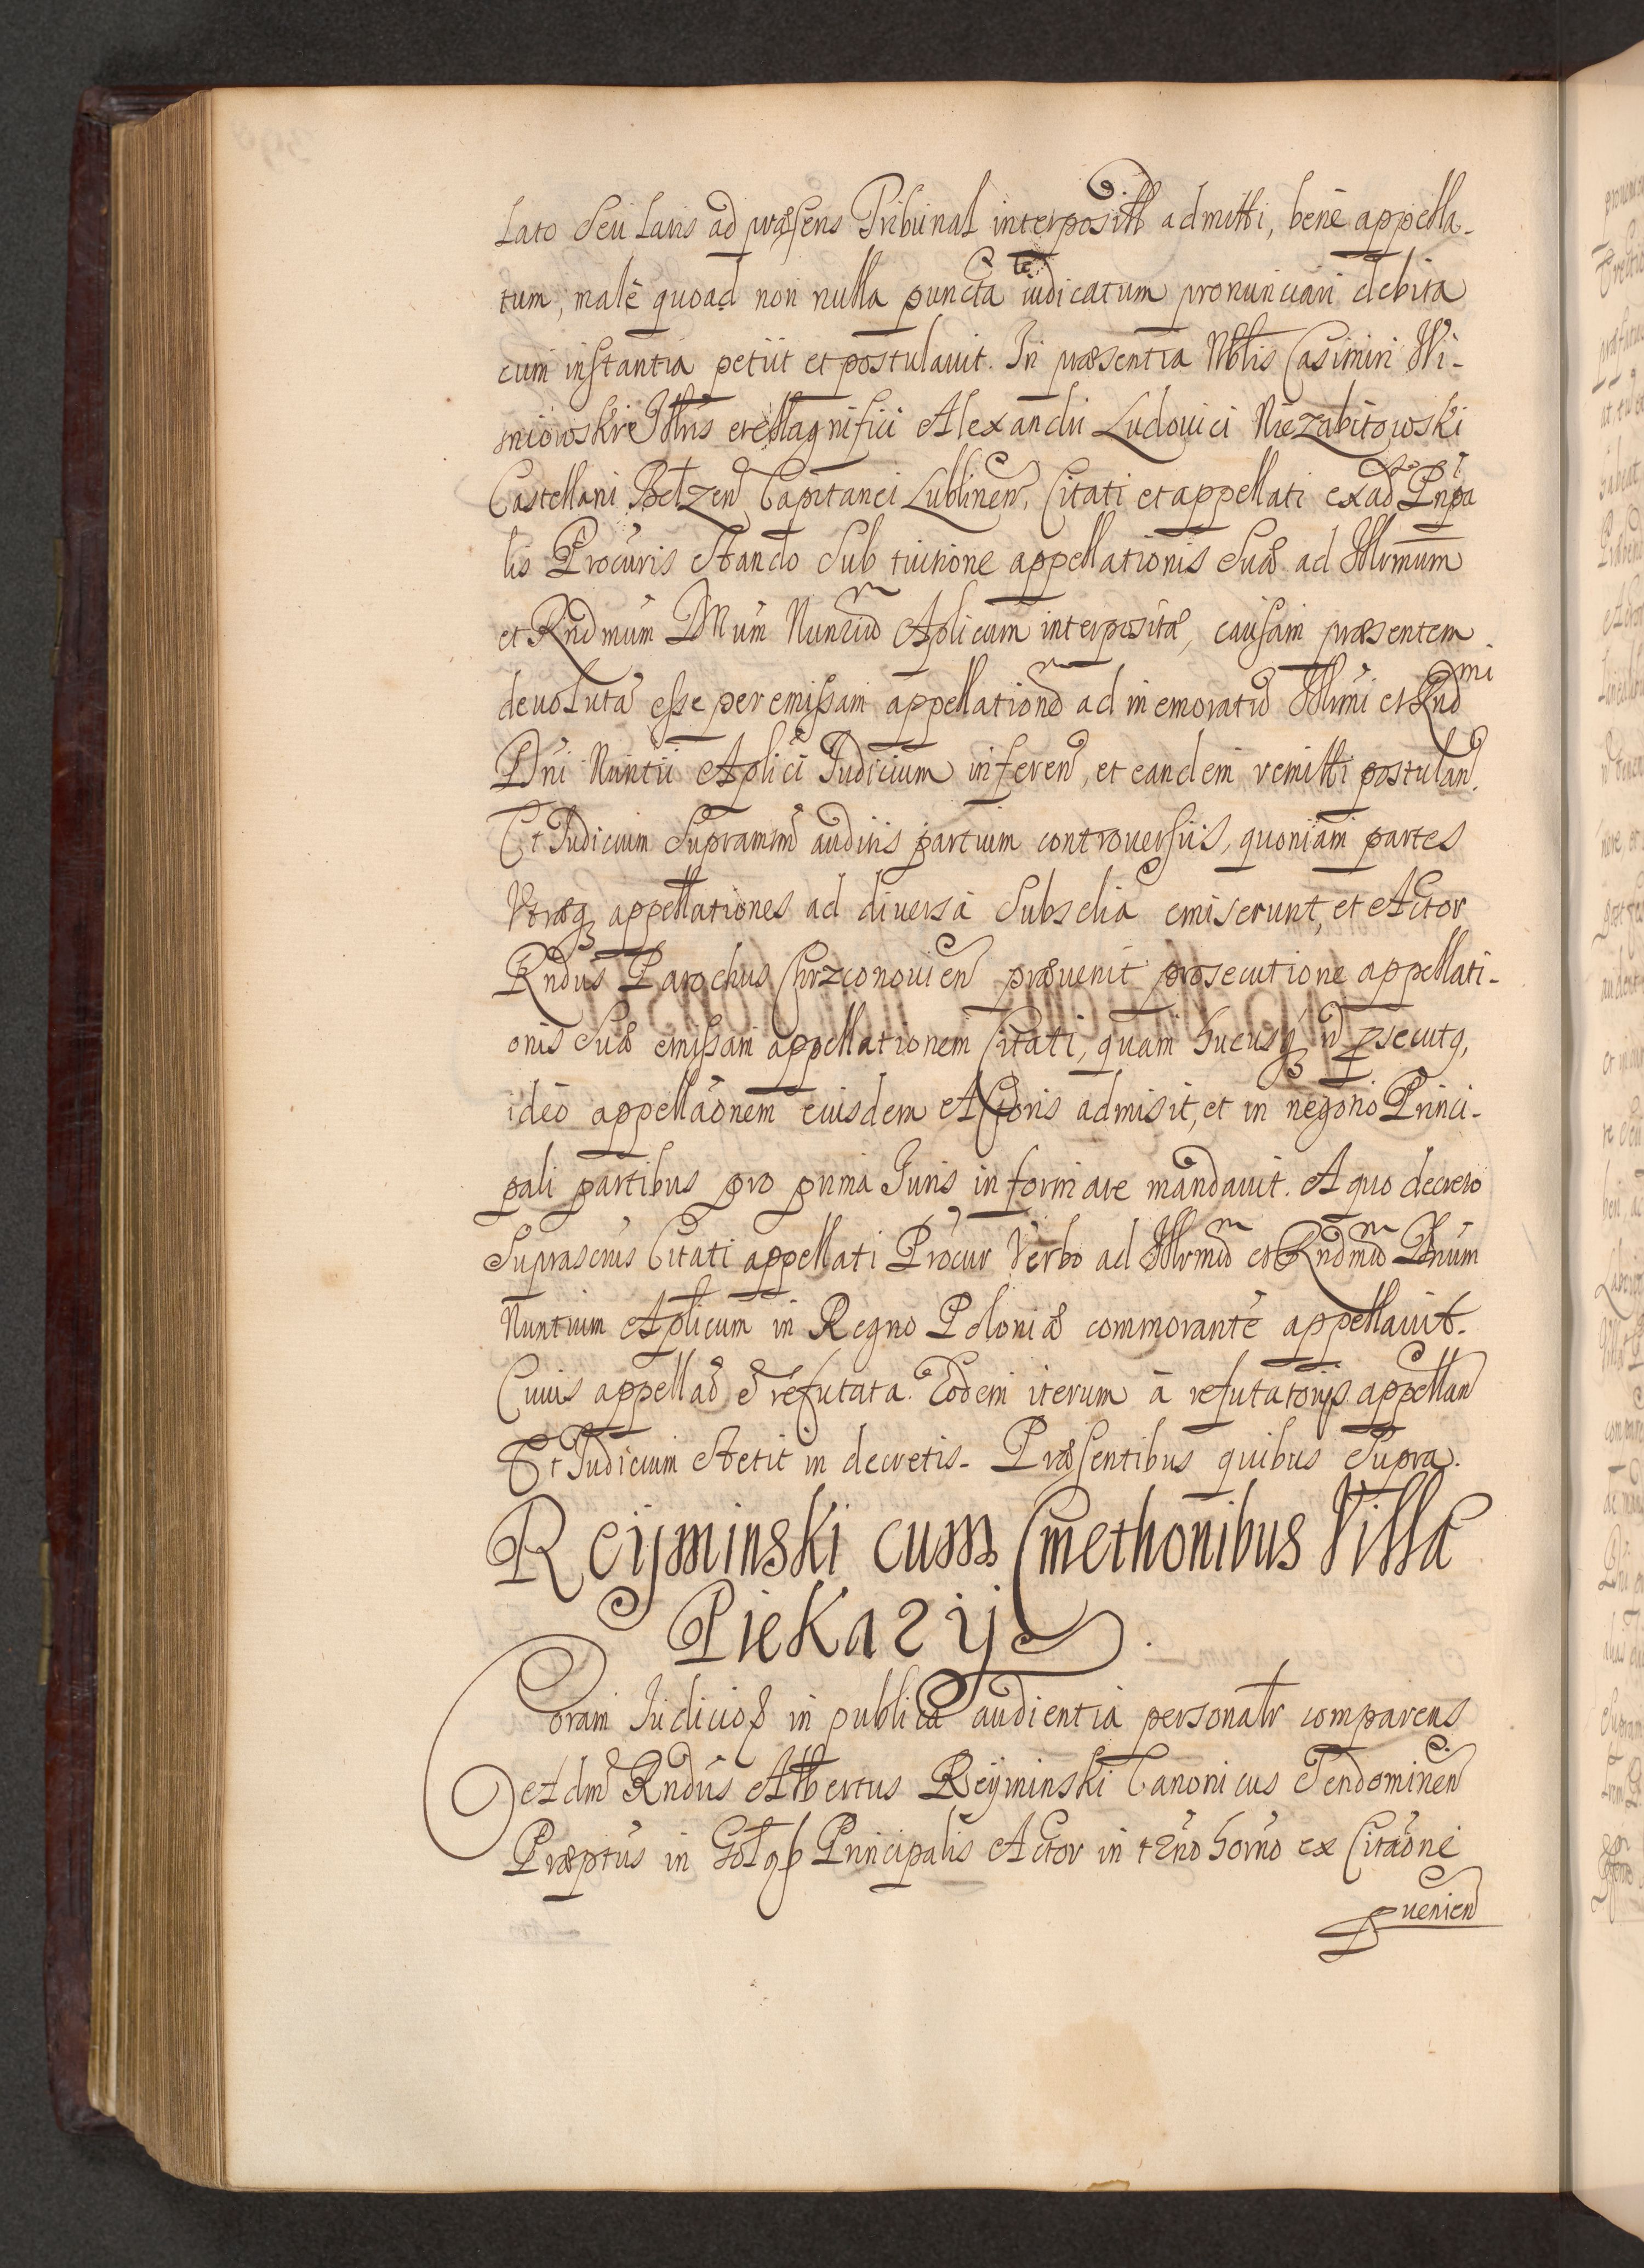 lato seu latis ad præsens Tribunal interpositæ admitti, bene appella-
tum, malè quoad non nulla puncta iudicatum pronunciari debita
cum instantia petiit et postulauit. In præsentia Nblis Casimiri Wi-
sniowski Illris et Magnifici Alexandri Ludouici Niezabitowski
Castellani Belzen Capitanei Lublinen, Citati et appellati ex ad Pnpa
lis Procuris Stando Sub tuitione appellationis Suæ ad Illrmum
et Rndmum Dnum Nuncium Aplicum interpositæ, causam præsentem
deuoluta esse per emissam appellationem ad memoratum Illrmi et Rndmi
Dni Nuntii Aplici Iudicium inferen, et eandem remitti postulan.
Et Iudicium Supramm auditis partium controuersiis, quoniam partes
Vtræq appellationes ad diuersa Subselia emiserunt, et Actor
Rndus Parochus Chrzconouien præuenit prosecutione appellati-
onis Suæ emissam appellationem Citati, quam hucusq n psecutq,
ideo appellaonem eiusdem Actoris admisit, et in negotio Princi-
pali partibus pro prima Iuris informare mandauit. A quo decreto
Suprascrius Citati appellati Procur Verbo ad Illrmum et Rndmum Dnum
Nuntium Aplicum in Regno Poloniæ commorante appellauit.
Cuius appellaō ē refutata. Eodem iterum à refutationis appellan
Et Iudicium Stetit in decretis. Præsentibus quibus Supra.
Reijminski cum Cmethonibus Villæ
Piekarij
Coram Iudicio in publica audientia personalr comparens
Rndus Albertus Reijminski Canonicus Sendomirien
Præptus in Gołąb Principalis Actor in tZno horno ex Citaone
pueniend